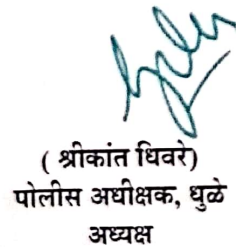 ( श्रीकांत धिवरे)
पोलीस अधीक्षक, धुळे
अध्यक्ष